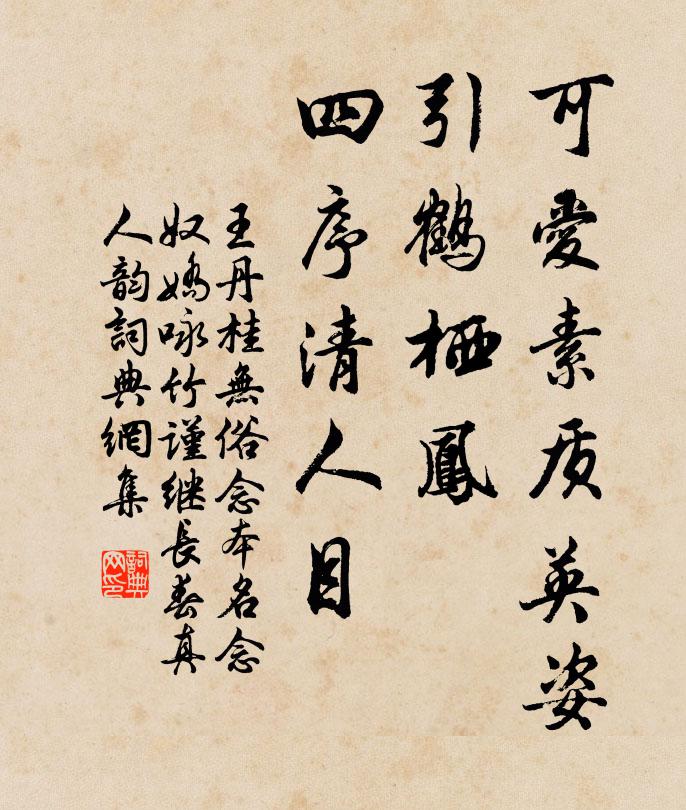 可愛素质英姿
引鶴栖鳳
四序清人目
王丹桂無俗念本名念
奴嬌咏竹謹继長春真
人韵詞典網集
詞典網印